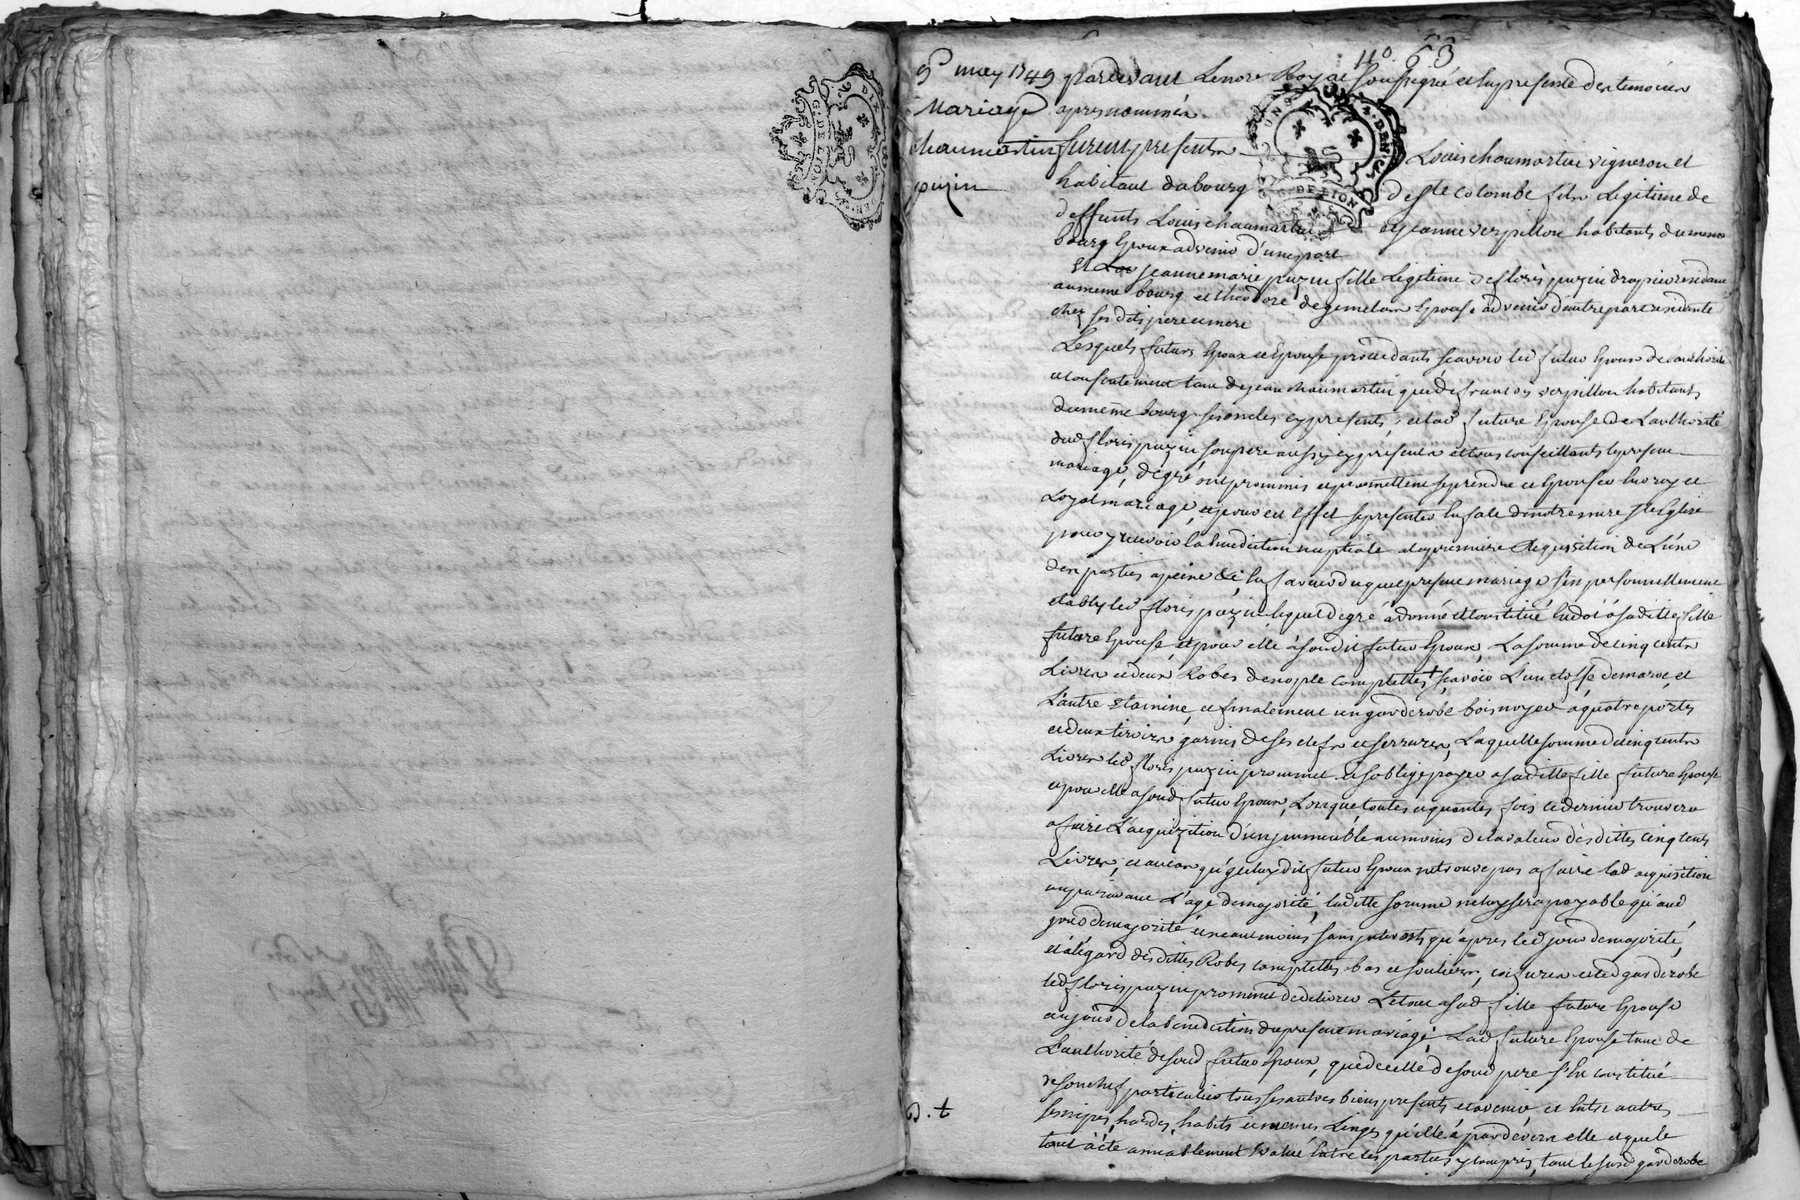 n.° 63
9e may 1749 pardevant Le no.re Royal soussigné et En presence des temoins
Mariage apres nommés
chaumartin furent presents Louis chaumartin vigneron et
puzin habitant du bourg de ste colombe fils Legitime de
deffunts Louis chaumartin et jeanne verpillon habitants du meme
bourg Epoux advenir d'une part
Et jeanne marie puzin fille Legitime de floris puzin drapier residant
au meme bourg et theodore degemelan Epouse advenir d'autre part residante
chez ses dits pere et mere
Lesquels futurs Epoux et Epouse procedants scavoir led futur Epoux de l'authorité
et consentement tant de jean chaumartin que de francois verpillon habitants
du même bourg ses oncles cy presents, et lad future Epouse de L'authorité
dud floris puzin son pere aussy cy present et tous conseillants le present
mariage, de gré ont promis et promettent se prendre et Epouser En vray et
Loyal mariage, et pour cet Effet se presenter En face de notre mere ste Eglise
pour y recevoir la benediction nuptiale a la premiere Requisition de L'une
des parties a peine &c En faveur duquel present mariage s'est personnellement
etably led floris puzin lequel de gré a donné et constitué En dot à sa ditte fille
future Epouse, et pour elle à son dit futur Epoux, La somme de cinq cents
Livres et deux Robes de nople complettes, scavoir L'une etoffe de maroc, et
L'autre Etamine, et finalement un garderobe bois noyer à quatre portes
et deux tiroirs garnis de ses clefs et serrures, Laquelle somme de cinq cents
Livres led floris puzin promet et s'oblige payer a sa ditte fille future Epouse
et pour elle a son d futur Epoux, Lorsque toutes et quantes fois ce dernier trouvera
a faire L'acquizition d'un jmmeuble au moins de la valeur des dittes cinq cents
Livres, et au cas qu'yceluy dit futur Epoux ne trouve pas a faire lad acquisition
auparavant L'age de majorité, laditte somme ne luy sera payable qu'aud
jour de majorité et neantmoins sans jnterests qu'apres led jour de majorité,
et à l'égard des dittes Robes complettes bas et souliers, coizures et led garderobe
led floris puzin promet de delivrer Le tout a sad fille future Epouse
au jour de la benediction du present mariage, Lad future Epouse tant de
L'authorité de son d futur Epoux, que de celle de son d pere s'En constitué
de son chef particulier tous ses autres biens presents et avenir, et Entre autres
D. t ses nipes, hardes, habits et menus Linges qu'elle a pardevers elle et que le
tout à été amiablement Evalué Entre les parties y compris, tant le susd garderobe